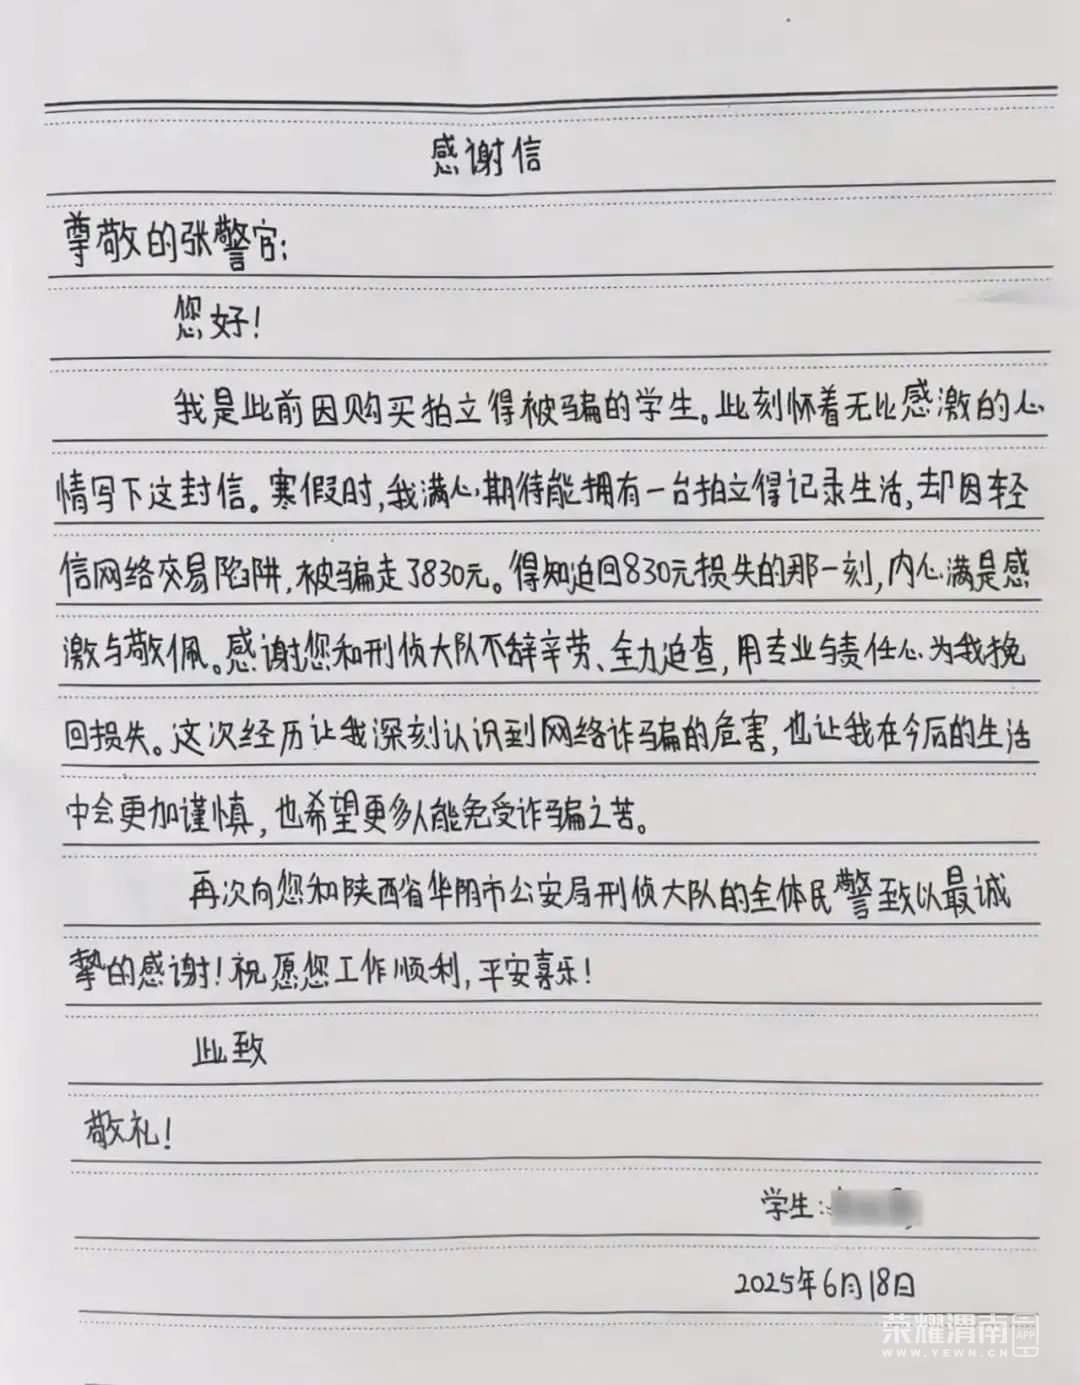 感谢信
尊敬的张警官:
您好!
我是此前因购买拍立得被骗的学生。此刻怀着无比感激的心
情写下这封信。寒假时,我满心期待能拥有一台拍立得记录生活,却因轻
信网络交易陷阱,被骗走了830元。得知追回830元损失的那一刻,内心满是感
激与敬佩。感谢您和刑侦大队不辞辛劳、全力追查,用专业与责任心为我挽
回损失。这次经历让我深刻认识到网络诈骗的危害,也让我在今后的生活
中会更加谨慎,也希望更多人能免受诈骗之苦。
再次向您和陕西省华阴市公安局刑侦大队的全体民警致以最诚
挚的感谢!祝愿您工作顺利,平安喜乐!
此致
敬礼!
学生:
2025年6月18日
荣耀渭南APP
WWW.YEWN.CN